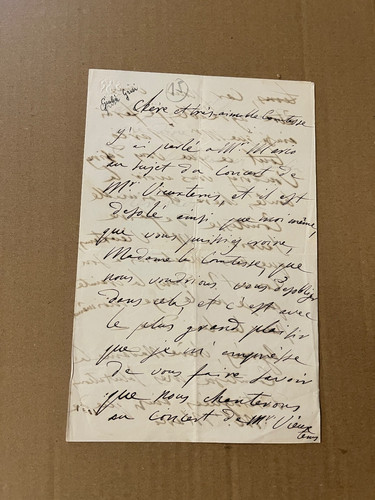 Giulia Grisi
21
Chère et très aimable Comtesse
J'ai parlé a Mr. Mario
au sujet du Concert de
Mr Vieuxtemps et il est
désolé ainsi que moi même,
que vous puissiez croire,
Madame la Comtesse, que
nous voudrions vous désobliger
dans cela et c'est avec
le plus grand plaisir
que je m'empresse
de vous faire savoir
que nous chanterons
au concert de Mr. Vieux
tems